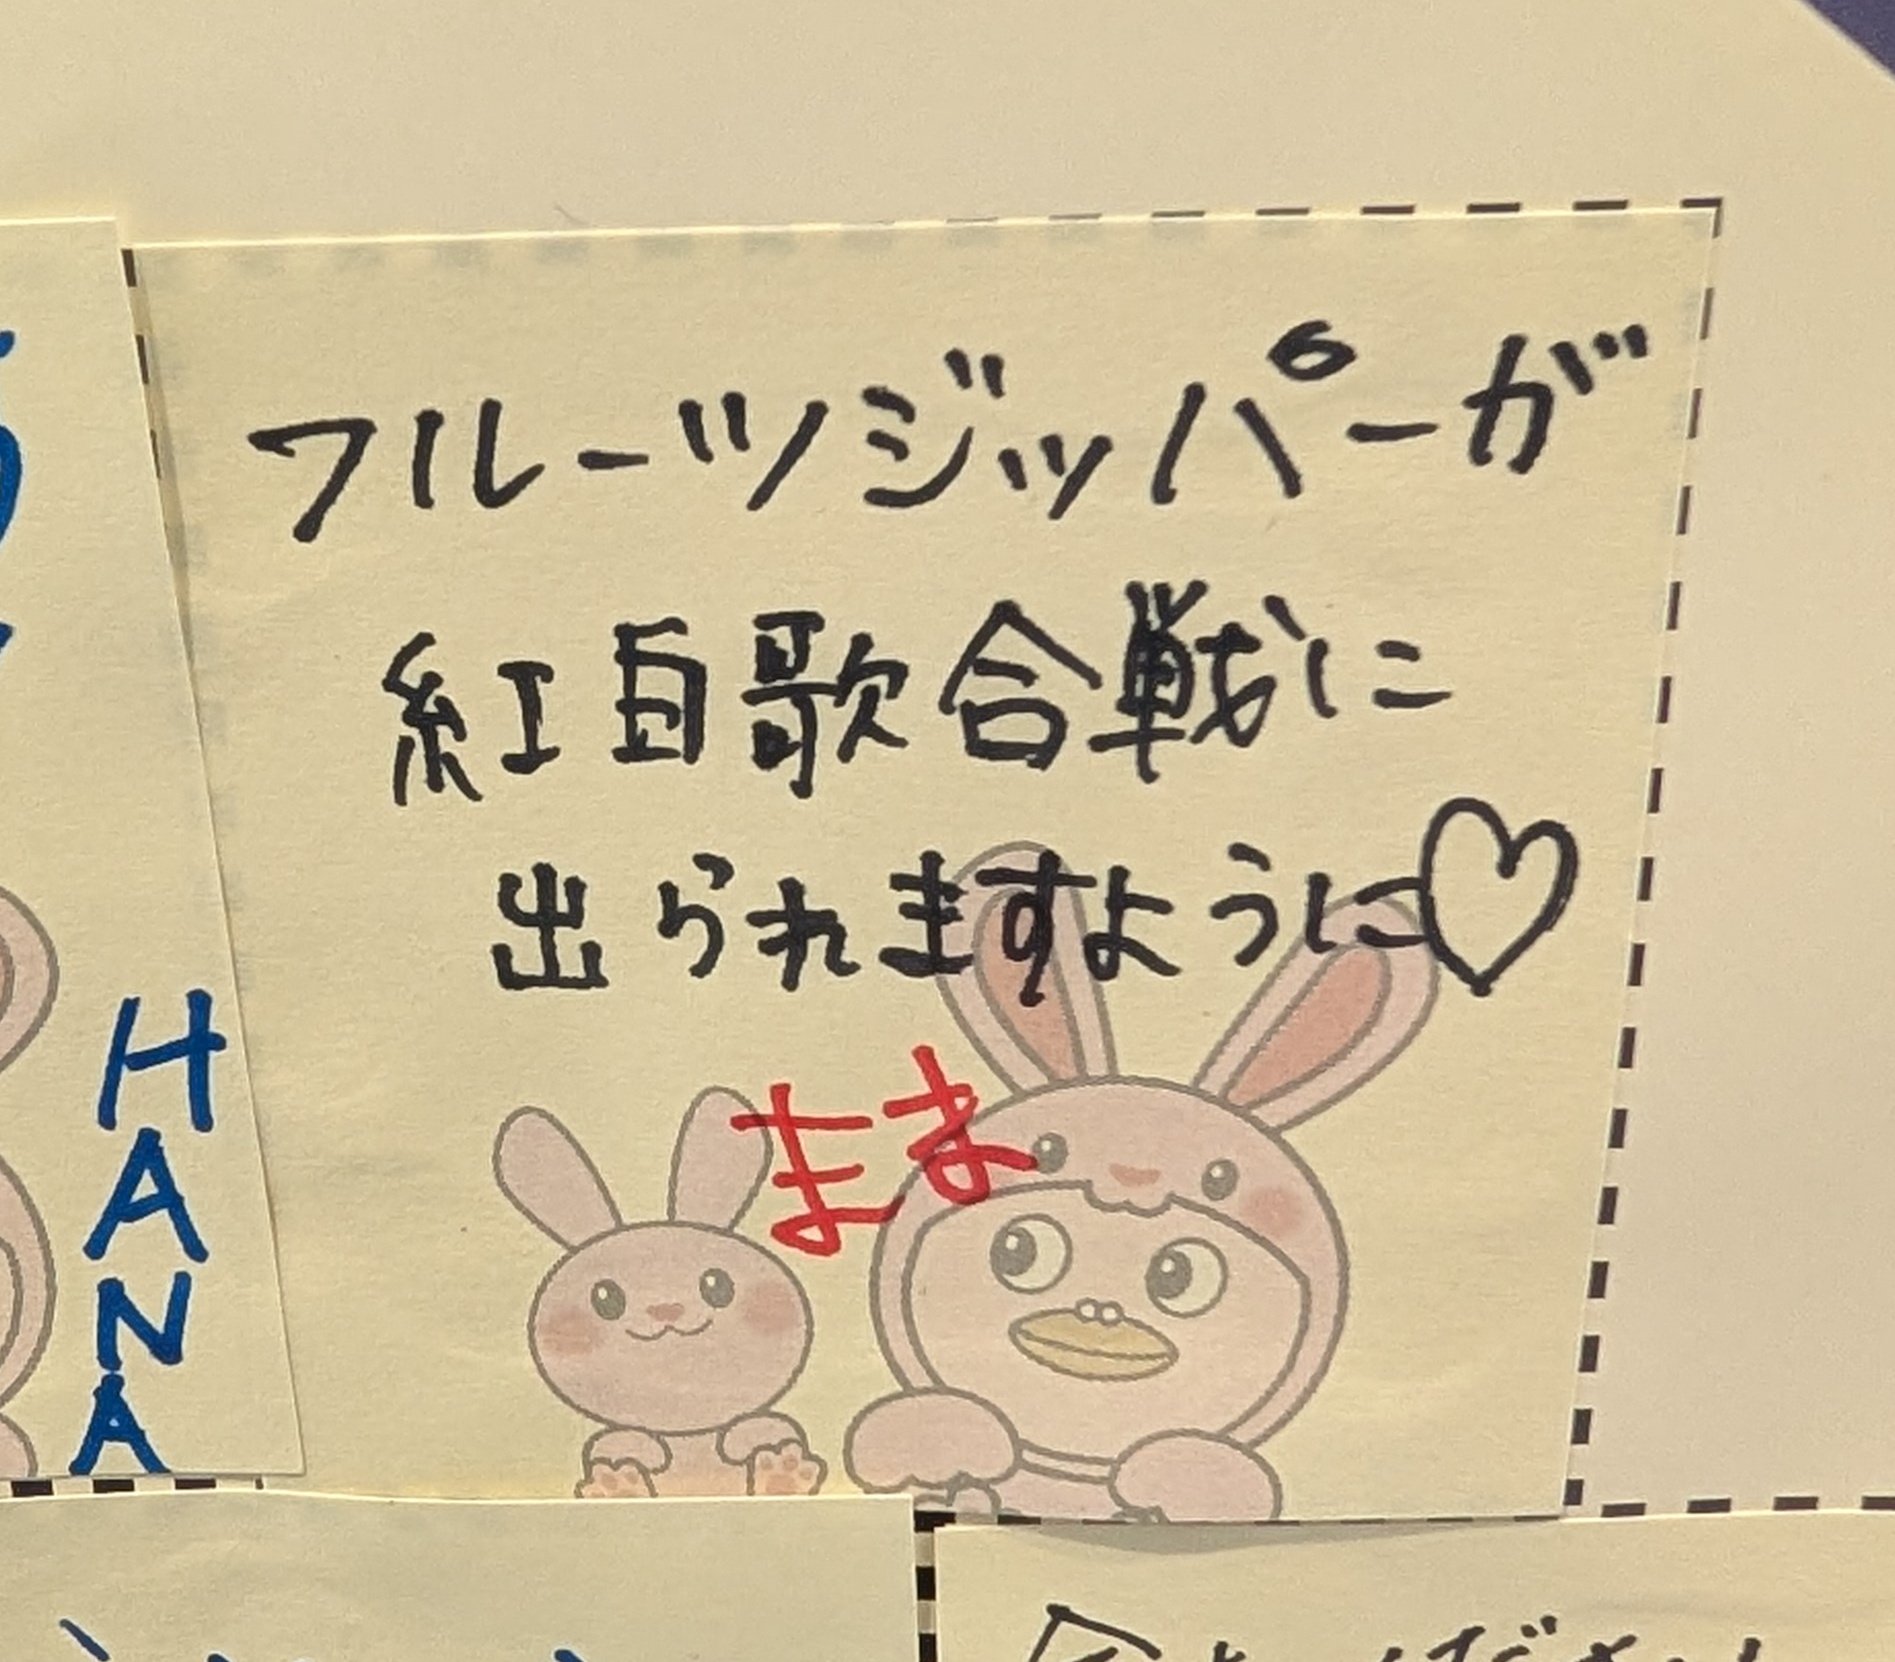 フルーツジッパーが
紅白歌合戦に
出られますように♡
まま
HANA